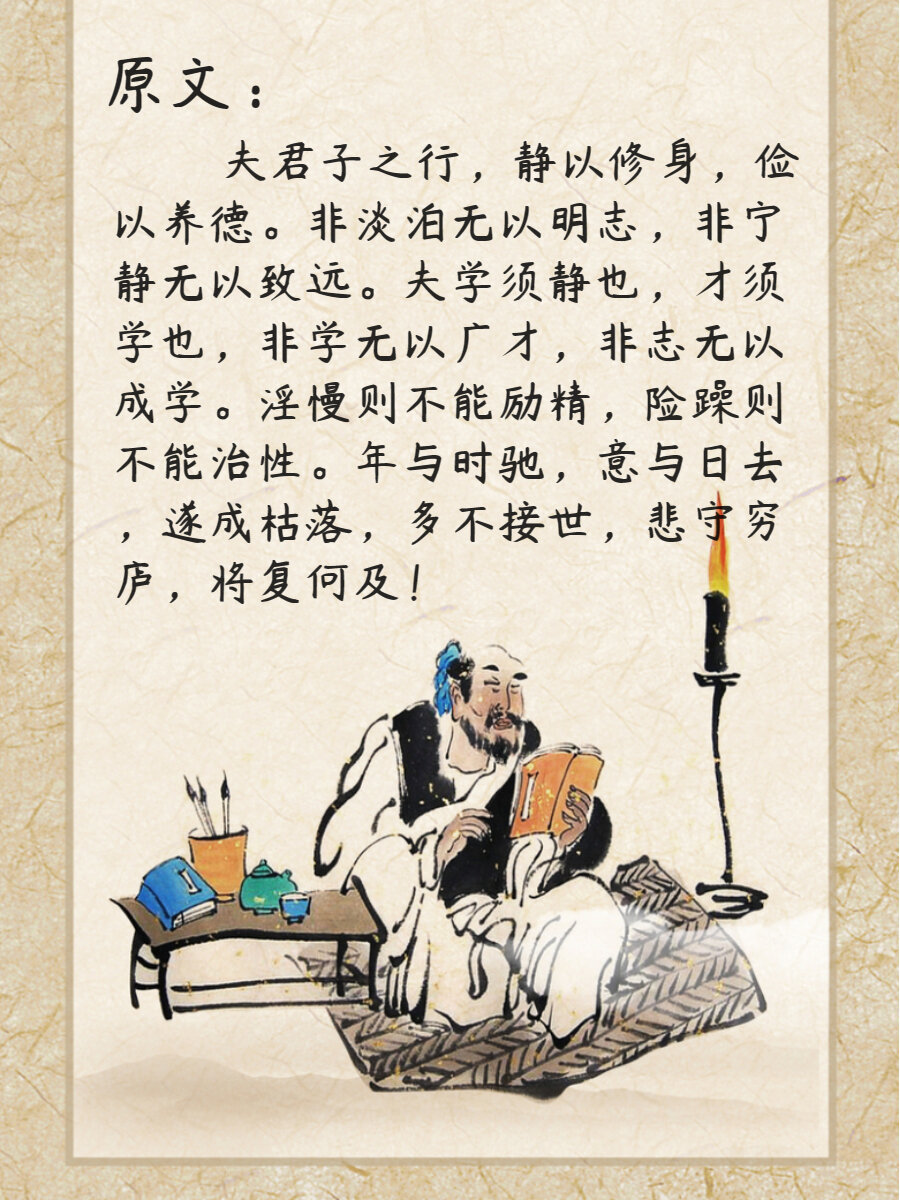 原文：
夫君子之行，静以修身，俭
以养德。非淡泊无以明志，非宁
静无以致远。夫学须静也，才须
学也，非学无以广才，非志无以
成学。淫慢则不能励精，险躁则
不能治性。年与时驰，意与日去
，遂成枯落，多不接世，悲守穷
庐，将复何及！